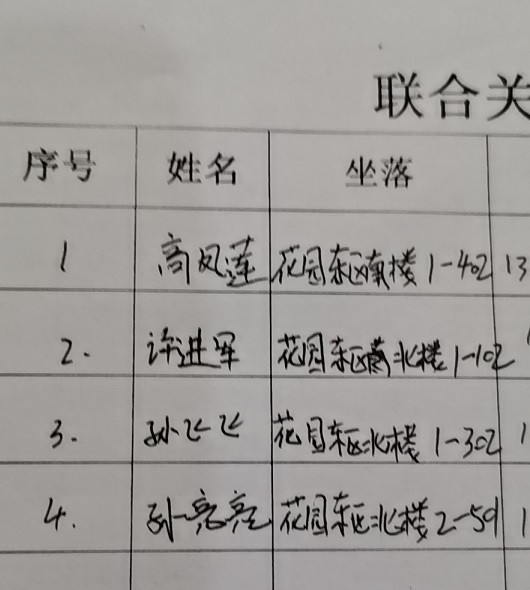 联合关
序号 姓名 坐落
1 高凤莲 花园东区南楼 1-402 13
2. 许进军 花园东区北楼 1-102 1
3. 孙飞飞 花园东区北楼 1-302 1
4. 孙亮亮 花园东区北楼 2-501 1